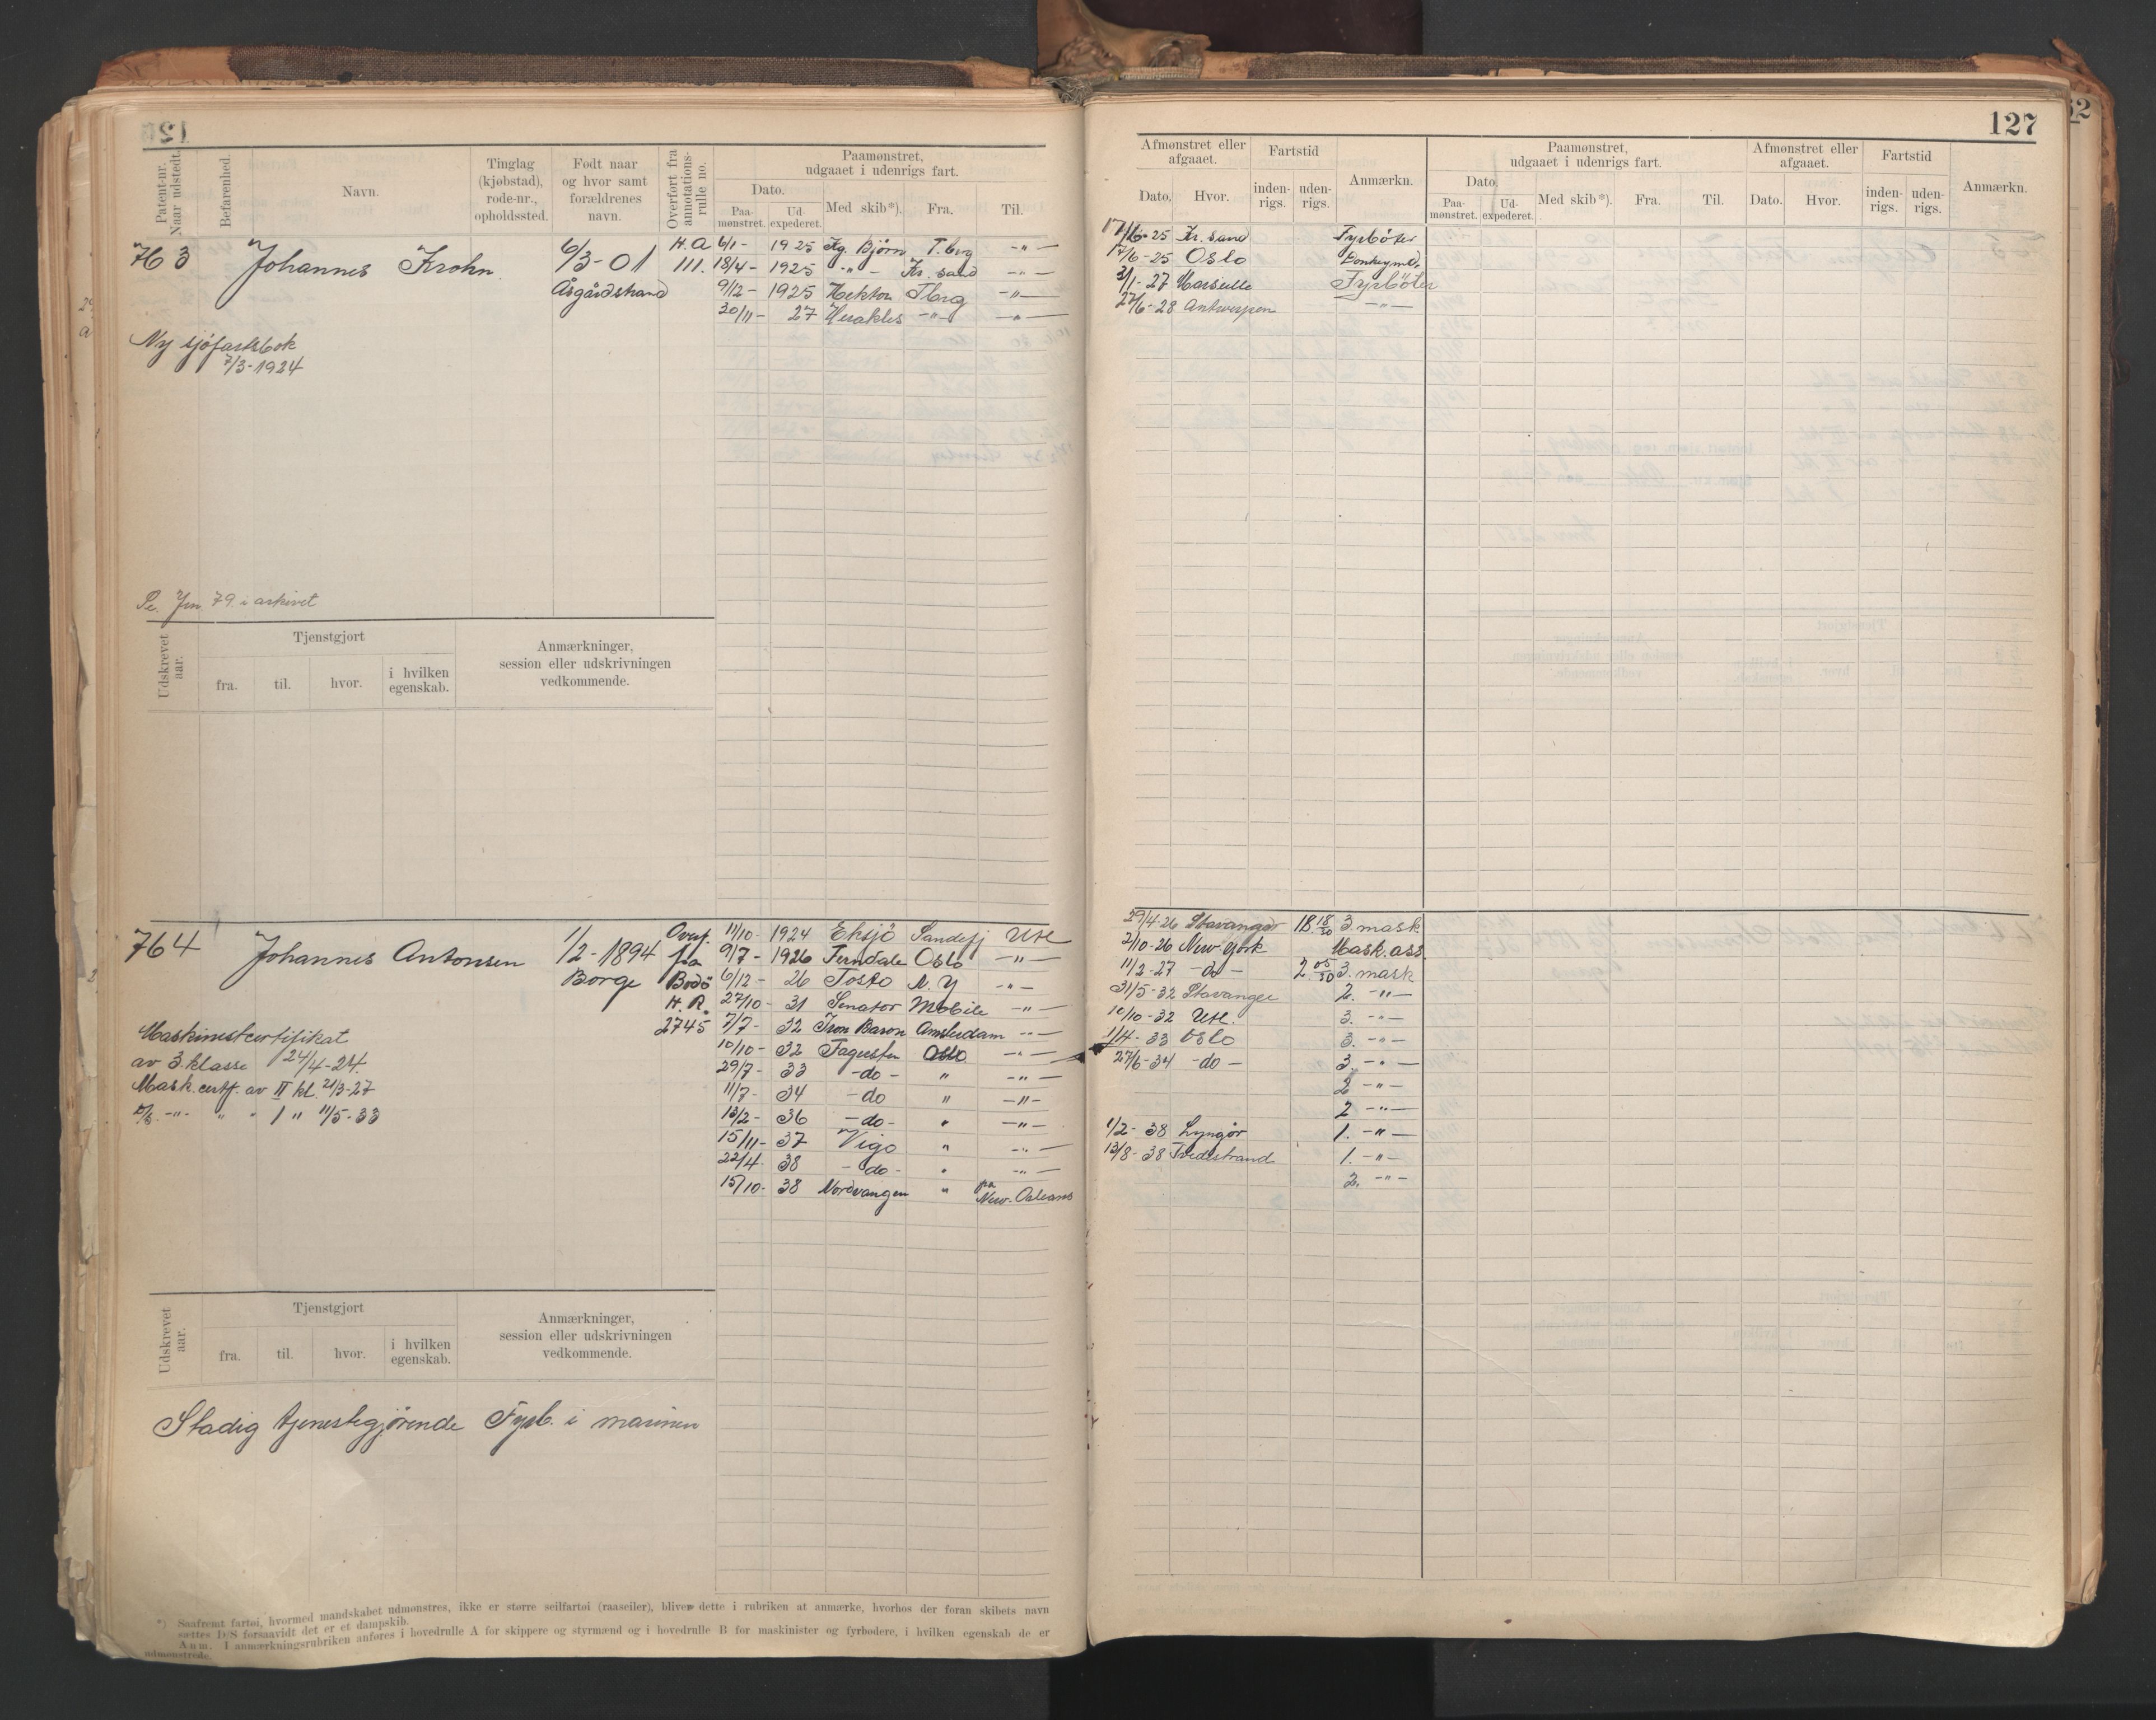 127
Patent-nr. Naar udstedt.
Befarenhed.
Navn.
Tinglag (kjøbstad), rode-nr., opholdssted.
Født naar og hvor samt forældrenes navn.
Overført fra annotations-rulle no.
Paamønstret, udgaaet i udenrigs fart.
Dato.
Paa-mønstret.
Ud-expederet.
Med skib*).
Fra.
Til.
Afmønstret eller afgaaet.
Dato.
Hvor.
Fartstid
inden-rigs.
uden-rigs.
Anmærkn.
Paamønstret, udgaaet i udenrigs fart.
Dato.
Paa-mønstret.
Ud-expederet.
Med skib*).
Fra.
Til.
Afmønstret eller afgaaet.
Dato.
Hvor.
Fartstid
inden-rigs.
uden-rigs.
Anmærkn.
763 Johannes Krohn. 6/3-01 H.A 6/1- 1925 Kg. Bjørn T.brg -"- 17/16-25 Kr. sand Fyrbøter
Åsgårdstrand 111. 18/4- 1925 -"- Kr. sand -"- 17/6-25 Oslo Donkeym.
9/12- 1925 Hektor Tbrg -"- 3/1-27 Marseille Fyrbøter
30/11- 27 Herakles -"- -"- 27/6-28 Antwerpen -"-
Ny sjøfartsbok
7/3-1924
79 i arkivet
Udskrevet aar.
Tjenstgjort
fra.
til.
hvor.
i hvilken egenskab.
Anmærkninger, session eller udskrivningen vedkommende.
764 Johannes Antonsen 1/2-1894 Overf. 11/10- 1924 Eksjø Sandefj Utl 29/4-26 Stavanger 18 18/30 3. mask
Borge fra 9/7- 1926 Ferndale Oslo -"- 2/10-26 New York Mask. ass.
Bodø 6/12- 26 Tosto N.Y -"- 11/2-27 -do- 2. 05/30 3. mask
H.R. 27/10- 31 Senator Mobile -"- 31/5-32 Stavanger 2. -"-
2745 7/7- 32 Iron Baron Amsterdam -"- 10/10-32 Utl. 3. -"-
10/10- 32 Fagersten Oslo -"- 1/4-33 Oslo 3. -"-
29/7- 33 -do- " -"- 27/6-34 -do- 3. -"-
11/7- 34 -do " -"- 2 -"-
13/2- 36 -do- " -"- 2 -"-
15/11- 37 Vigo " -"- 1/2-38 Lyngør 1. -"-
22/4- 38 -do- " -"- 13/8-38 Tvedestrand 1. -"-
15/10- 38 Nordvangen " fra New-Orleans 2. -"-
Maskinistcertifikat
av 3. klasse 24/4-24.
Mask. certf. av II kl. 21/3-27
-"- " " 1 " 11/5-33
Udskrevet aar.
Tjenstgjort
fra.
til.
hvor.
i hvilken egenskab.
Anmærkninger, session eller udskrivningen vedkommende.
Stadig tjenestegjørende Fyrb. i marinen
*) Saafremt fartøi, hvormed mandskabet udmønstres, ikke er større seilfartøi (raaseiler), bliver dette i rubriken at anmærke, hvorhos der foran skibets navn
sættes D/S forsaavidt det er et dampskib.
Anm. I anmærkningsrubriken anføres i hovedrulle A for skippere og styrmænd og i hovedrulle B for maskinister og fyrbødere, i hvilken egenskab de er
udmønstrede.